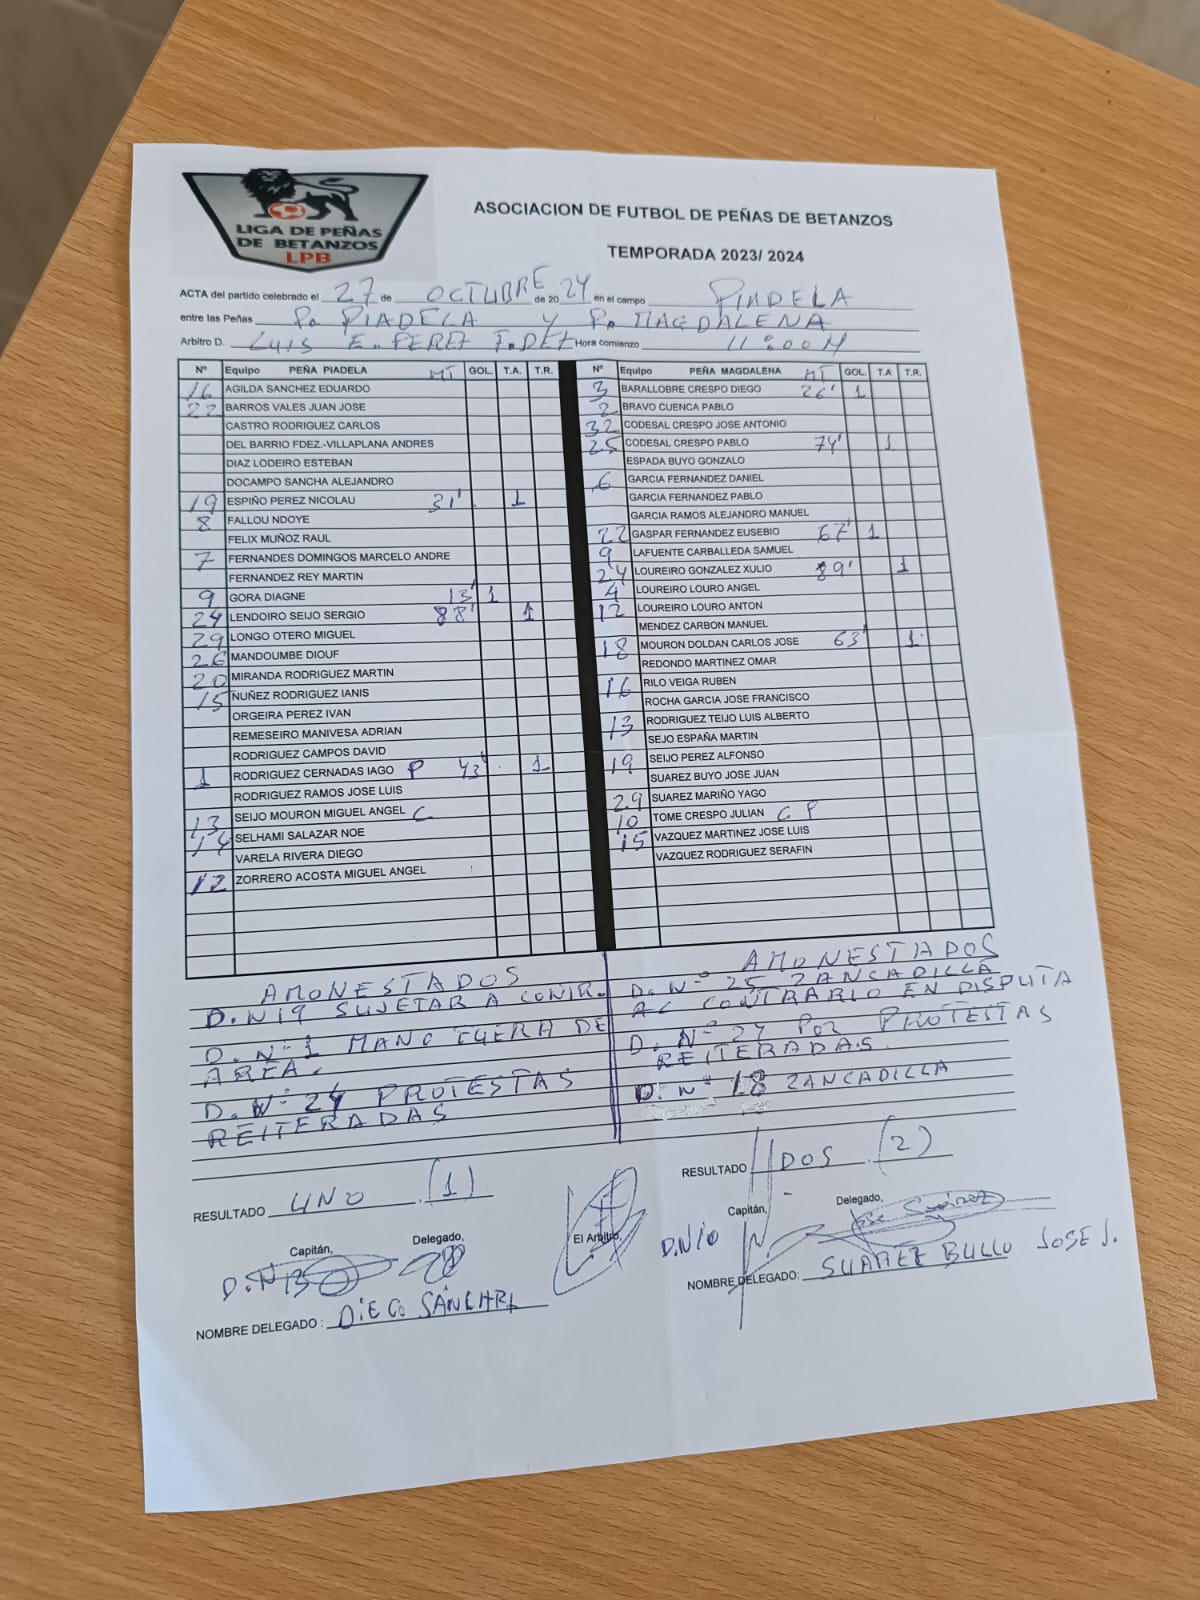 LIGA DE PEÑAS
DE BETANZOS
LPB
ASOCIACION DE FUTBOL DE PEÑAS DE BETANZOS
TEMPORADA 2023/ 2024
ACTA del partido celebrado el 27 de OCTUBRE de 2024 en el campo PIADELA
entre las Peñas P. PIADELA y P. MAGDALENA
Arbitro D. LUIS E. PEREZ F.DEZ Hora comienzo 11:00 H
Nº Equipo PEÑA PIADELA MT GOL. T.A. T.R.
16 AGILDA SANCHEZ EDUARDO
22 BARROS VALES JUAN JOSE
CASTRO RODRIGUEZ CARLOS
DEL BARRIO FDEZ.-VILLAPLANA ANDRES
DIAZ LODEIRO ESTEBAN
DOCAMPO SANCHA ALEJANDRO
19 ESPIÑO PEREZ NICOLAU 31' 1
8 FALLOU NDOYE
FELIX MUÑOZ RAUL
7 FERNANDES DOMINGOS MARCELO ANDRE
FERNANDEZ REY MARTIN
9 GORA DIAGNE 13' 1
24 LENDOIRO SEIJO SERGIO 88' 1
29 LONGO OTERO MIGUEL
26 MANDOUMBE DIOUF
20 MIRANDA RODRIGUEZ MARTIN
15 NUÑEZ RODRIGUEZ IANIS
ORGEIRA PEREZ IVAN
REMESEIRO MANIVESA ADRIAN
RODRIGUEZ CAMPOS DAVID
1 RODRIGUEZ CERNADAS IAGO P 43' 1
RODRIGUEZ RAMOS JOSE LUIS
13 SEIJO MOURON MIGUEL ANGEL C
14 SELHAMI SALAZAR NOE
VARELA RIVERA DIEGO
12 ZORRERO ACOSTA MIGUEL ANGEL
Nº Equipo PEÑA MAGDALENA MT GOL. T.A T.R.
3 BARALLOBRE CRESPO DIEGO 26' 1
2 BRAVO CUENCA PABLO
32 CODESAL CRESPO JOSE ANTONIO
25 CODESAL CRESPO PABLO 74' 1
ESPADA BUYO GONZALO
6 GARCIA FERNANDEZ DANIEL
GARCIA FERNANDEZ PABLO
GARCIA RAMOS ALEJANDRO MANUEL
22 GASPAR FERNANDEZ EUSEBIO 67' 1
9 LAFUENTE CARBALLEDA SAMUEL
24 LOUREIRO GONZALEZ XULIO 89' 1
4 LOUREIRO LOURO ANGEL
12 LOUREIRO LOURO ANTON
MENDEZ CARBON MANUEL
18 MOURON DOLDAN CARLOS JOSE 63' 1
REDONDO MARTINEZ OMAR
16 RILO VEIGA RUBEN
ROCHA GARCIA JOSE FRANCISCO
13 RODRIGUEZ TEIJO LUIS ALBERTO
SEJO ESPAÑA MARTIN
19 SEIJO PEREZ ALFONSO
SUAREZ BUYO JOSE JUAN
29 SUAREZ MARIÑO YAGO
10 TOME CRESPO JULIAN C P
15 VAZQUEZ MARTINEZ JOSE LUIS
VAZQUEZ RODRIGUEZ SERAFIN
AMONESTADOS
D. N 19 SUJETAR A CONTR.
D. Nº 1 MANO FUERA DE
AREA.
D. Nº 24 PROTESTAS
REITERADAS
AMONESTADOS
D. Nº 25 ZANCADILLA
AL CONTRARIO EN DISPUTA
D. Nº 24 POR PROTESTAS
REITERADAS.
D. Nº 18 ZANCADILLA
RESULTADO UNO (1)
Capitán, Delegado,
D. Nº 13
NOMBRE DELEGADO : DIEGO
El Arbitro,
RESULTADO DOS (2)
Capitán, Delegado,
D. N 10 Jose Suárez
NOMBRE DELEGADO: SUAREZ BULLO JOSE J.